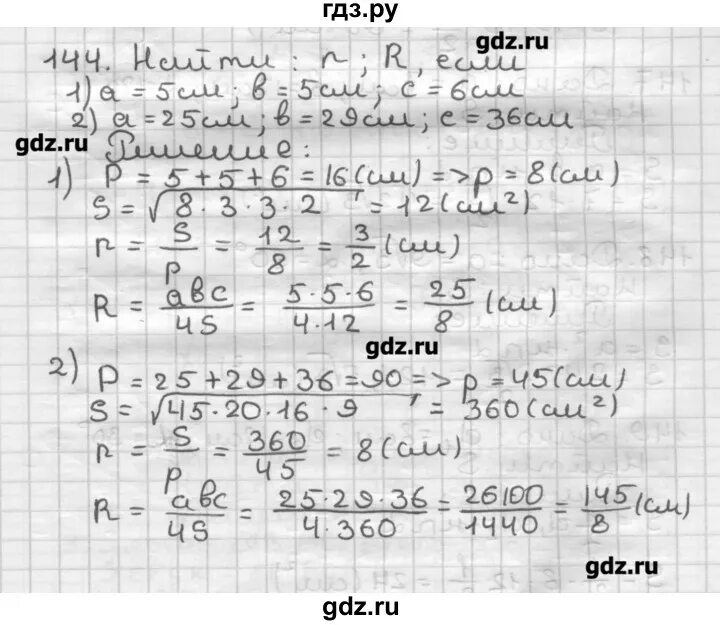 гдз.ру
144. Найти: r; R, если
gdz.ru
1) a = 5см; в = 5см; c = 6см
2) a = 25см; в = 29см; c = 36см
gdz.ru
Решение:
1) P = 5 + 5 + 6 = 16 (см) => p = 8 (см)
S = √8 · 3 · 3 · 2 = 12 (см²)
r = S/p = 12/8 = 3/2 (см)
R = авс/4S = 5·5·6/4·12 = 25/8 (см)
gdz.ru
2) P = 25 + 29 + 36 = 90 => p = 45 (см)
S = √45 · 20 · 16 · 9 = 360 (см²)
r = S/p = 360/45 = 8 (см)
R = авс/4S = 25·29·36/4·360 = 26100/1440 = 145/8 (см)
gdz.ru
gdz.ru